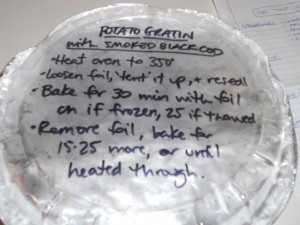 POTATO GRATIN
with SMOKED BLACK COD
·Heat oven to 350°
·Loosen foil, "tent" it up, + reseal
·Bake for 30 min with foil
on if frozen, 25 if thawed
·Remove foil, bake for
15-25 more, or until
heated through.